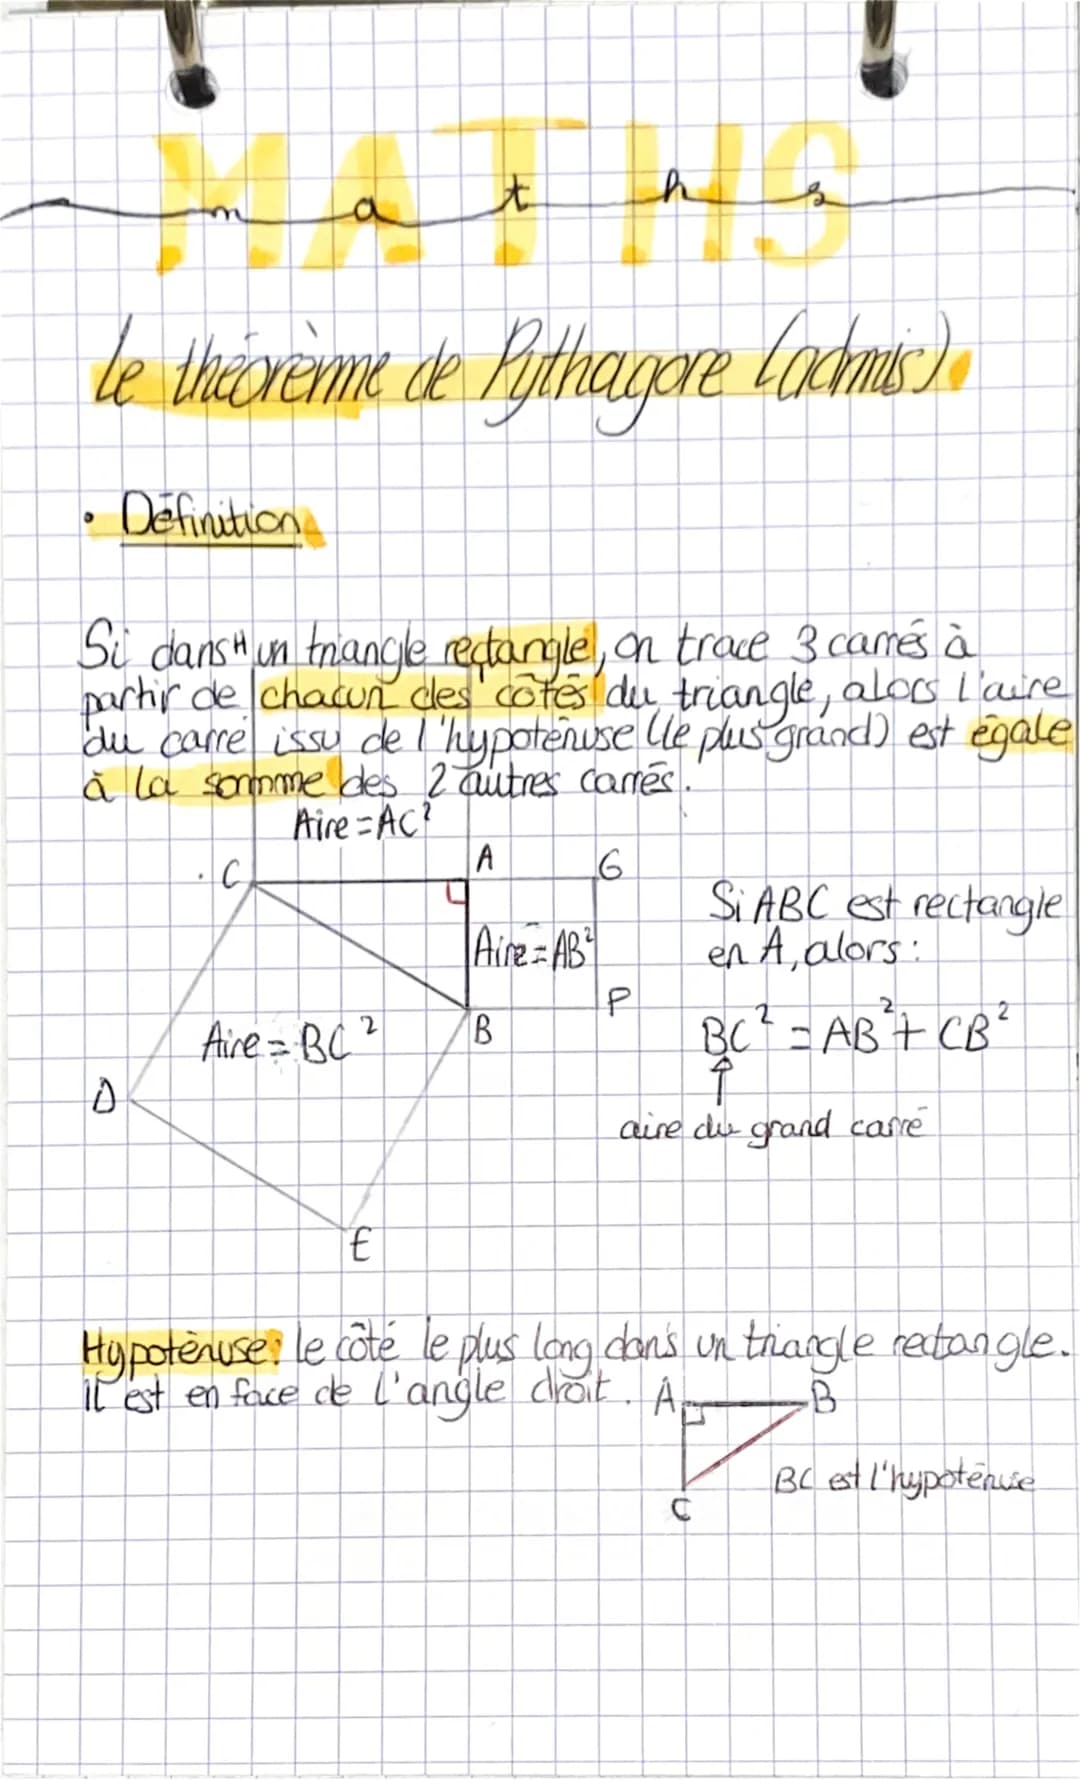 MATHS
maths
Le théorème de Pythagore (admis).
• Définition
Si dans un triangle rectangle, on trace 3 carrés à
partir de chacun des côtés du triangle, alors l'aire
du carré issu de l'hypoténuse (le plus grand) est égale
à la somme des 2 autres carrés.
Aire = AC²
C
A
G
Aire = AB²
Si ABC est rectangle
en A, alors :
P
B
Aire = BC²
BC² = AB² + CB²
D
aire du grand carré
E
Hypoténuse : le côté le plus long dans un triangle rectangle.
il est en face de l'angle droit.
A
B
BC est l'hypoténuse
C